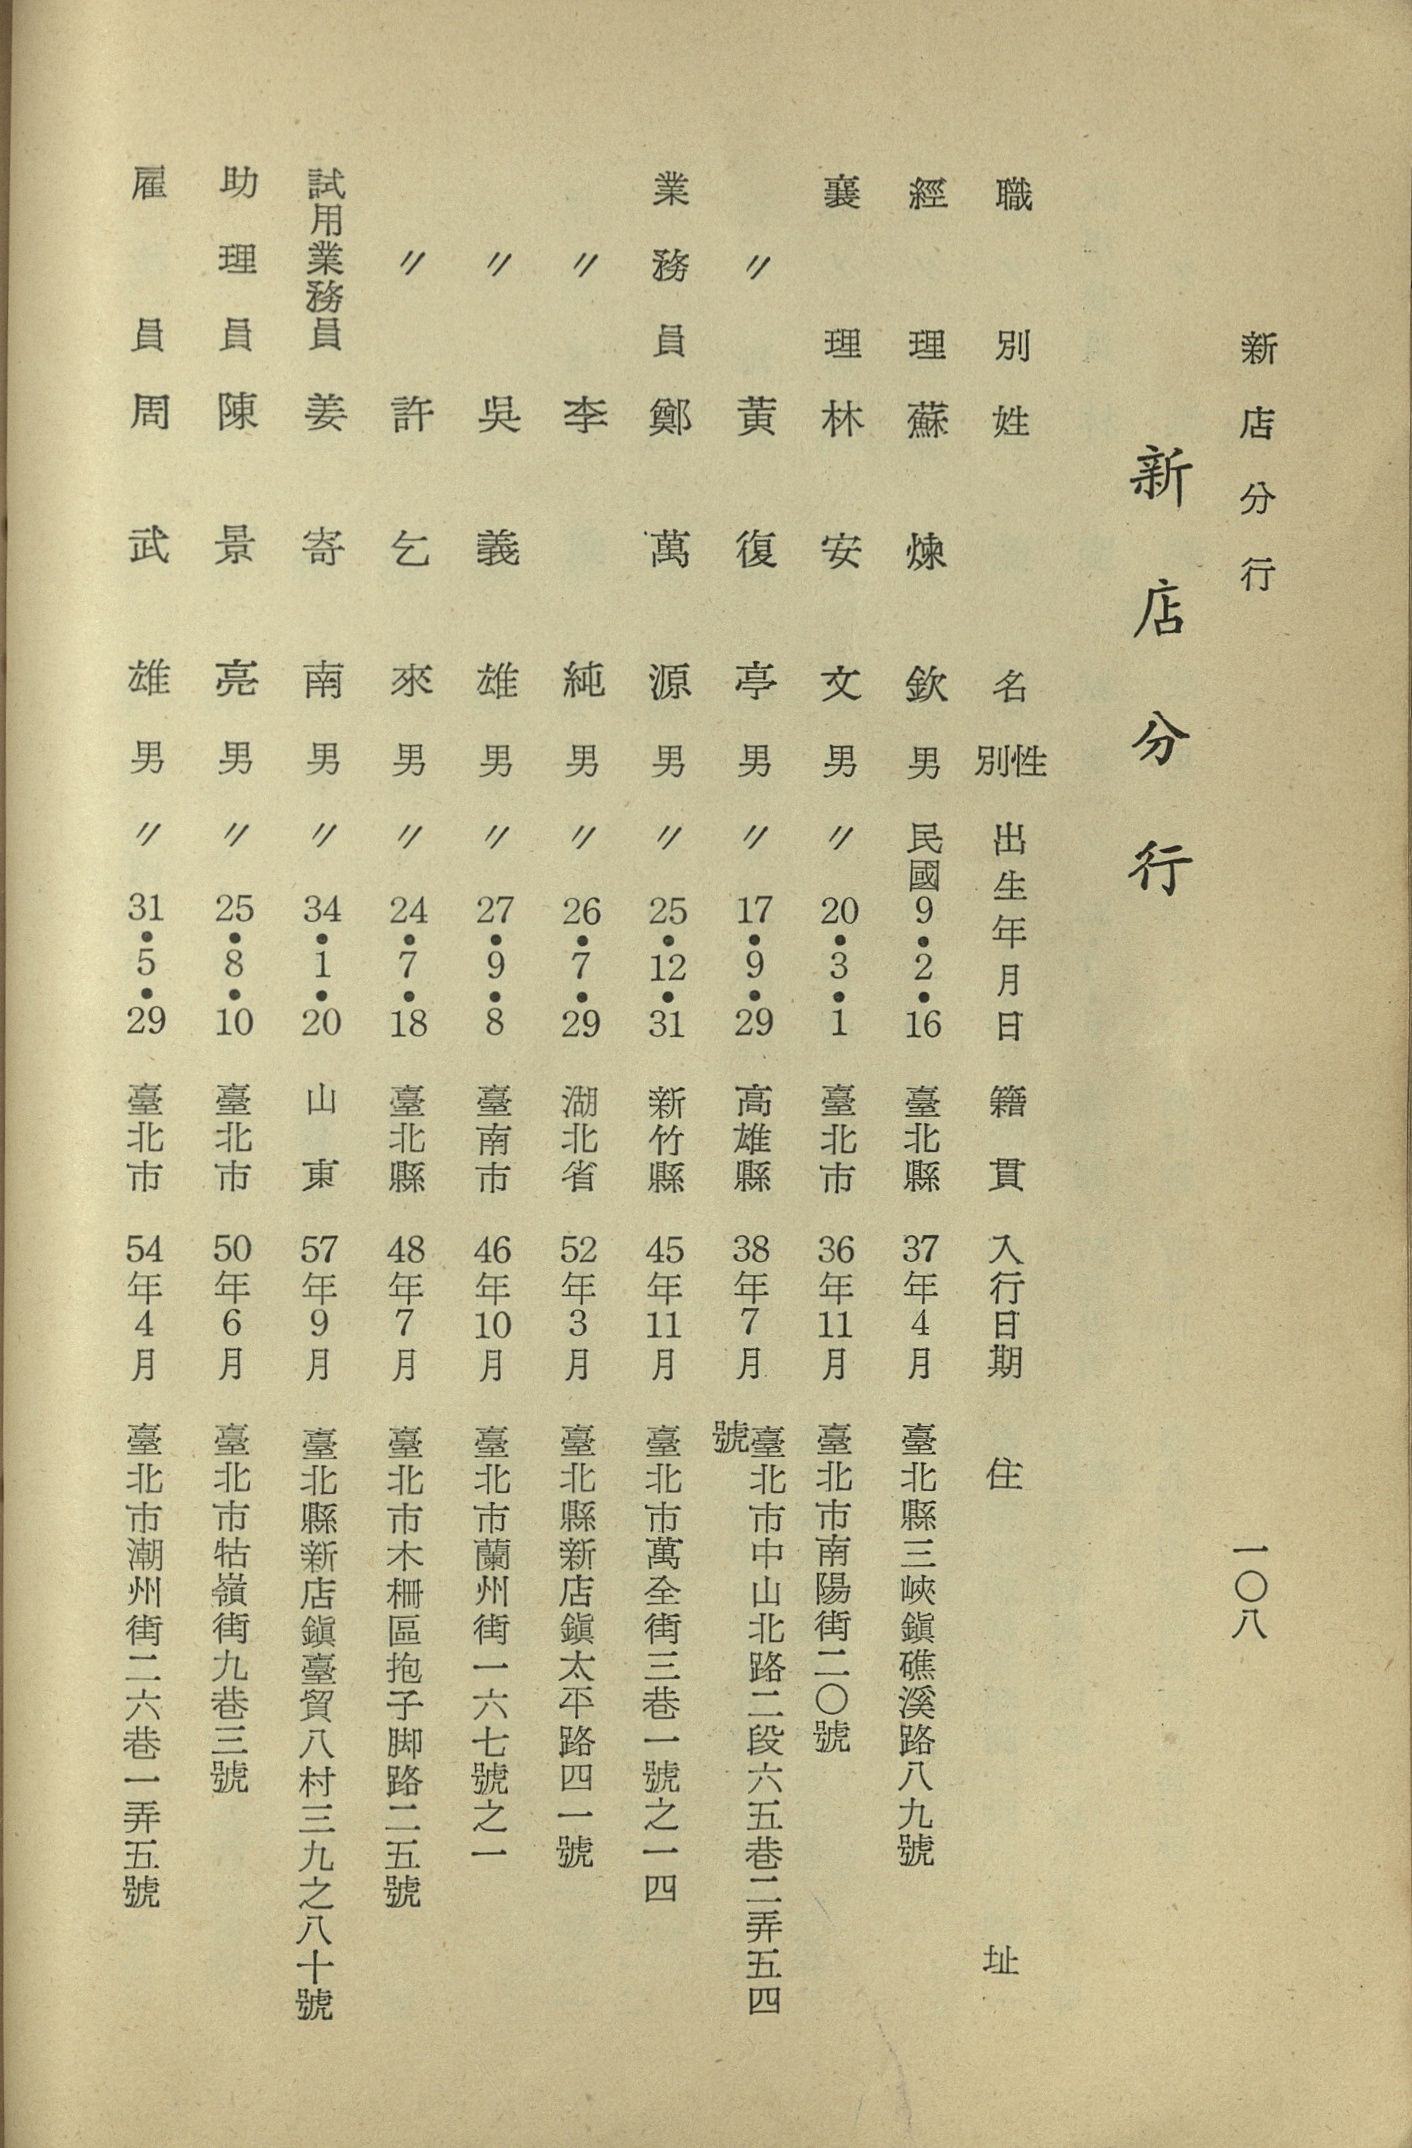 新店分行
一〇八
新店分行
職別 姓名 性別 出生年月日 籍貫 入行日期 住址
經理 蘇煉欽 男 民國9•2•16 臺北縣 37年4月 臺北縣三峽鎭礁溪路八九號
襄理 林安文 男 〃20•3•1 臺北市 36年11月 臺北市南陽街二〇號
〃 黃復亭 男 〃17•9•29 高雄縣 38年7月 臺北市中山北路二段六五巷二弄五四
號
業務員 鄭萬源 男 〃25•12•31 新竹縣 45年11月 臺北市萬全街三巷一號之一四
〃 李純 男 〃26•7•29 湖北省 52年3月 臺北縣新店鎭太平路四一號
〃 吳義雄 男 〃27•9•8 臺南市 46年10月 臺北市蘭州街一六七號之一
〃 許乞來 男 〃24•7•18 臺北縣 48年7月 臺北市木柵區抱子脚路二五號
試用業務員 姜寄南 男 〃34•1•20 山東 57年9月 臺北縣新店鎭臺貿八村三九之八十號
助理員 陳景亮 男 〃25•8•10 臺北市 50年6月 臺北市牯嶺街九巷三號
雇員 周武雄 男 〃31•5•29 臺北市 54年4月 臺北市潮州街二六巷一弄五號